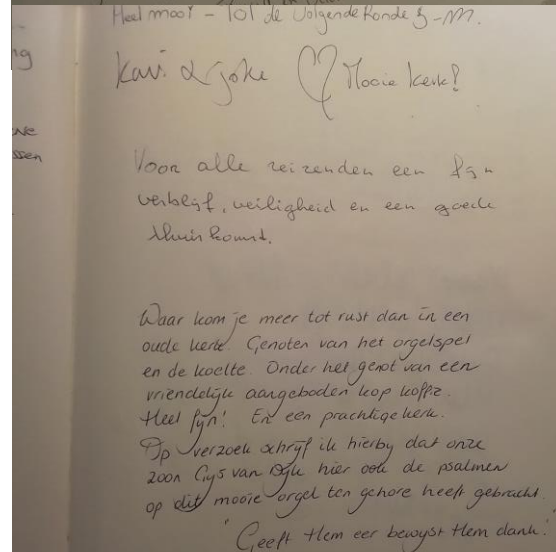 ng
Heel mooi - Tot de volgende Ronde
Mooie kerk!
Voor alle reizenden een fijn
verblijf, veiligheid en een goede
thuiskomst.
Waar kom je meer tot rust dan in een
oude kerk. Genoten van het orgelspel
en de koelte. Onder het genot van een
vriendelijk aangeboden kop koffie.
Heel fijn! En een prachtige kerk.
Op verzoek schrijf ik hierby dat onze
zoon Gijs van Dijk hier ook de psalmen
op dit mooie orgel ten gehore heeft gebracht.
"Geeft Hem eer bewyst Hem dank."